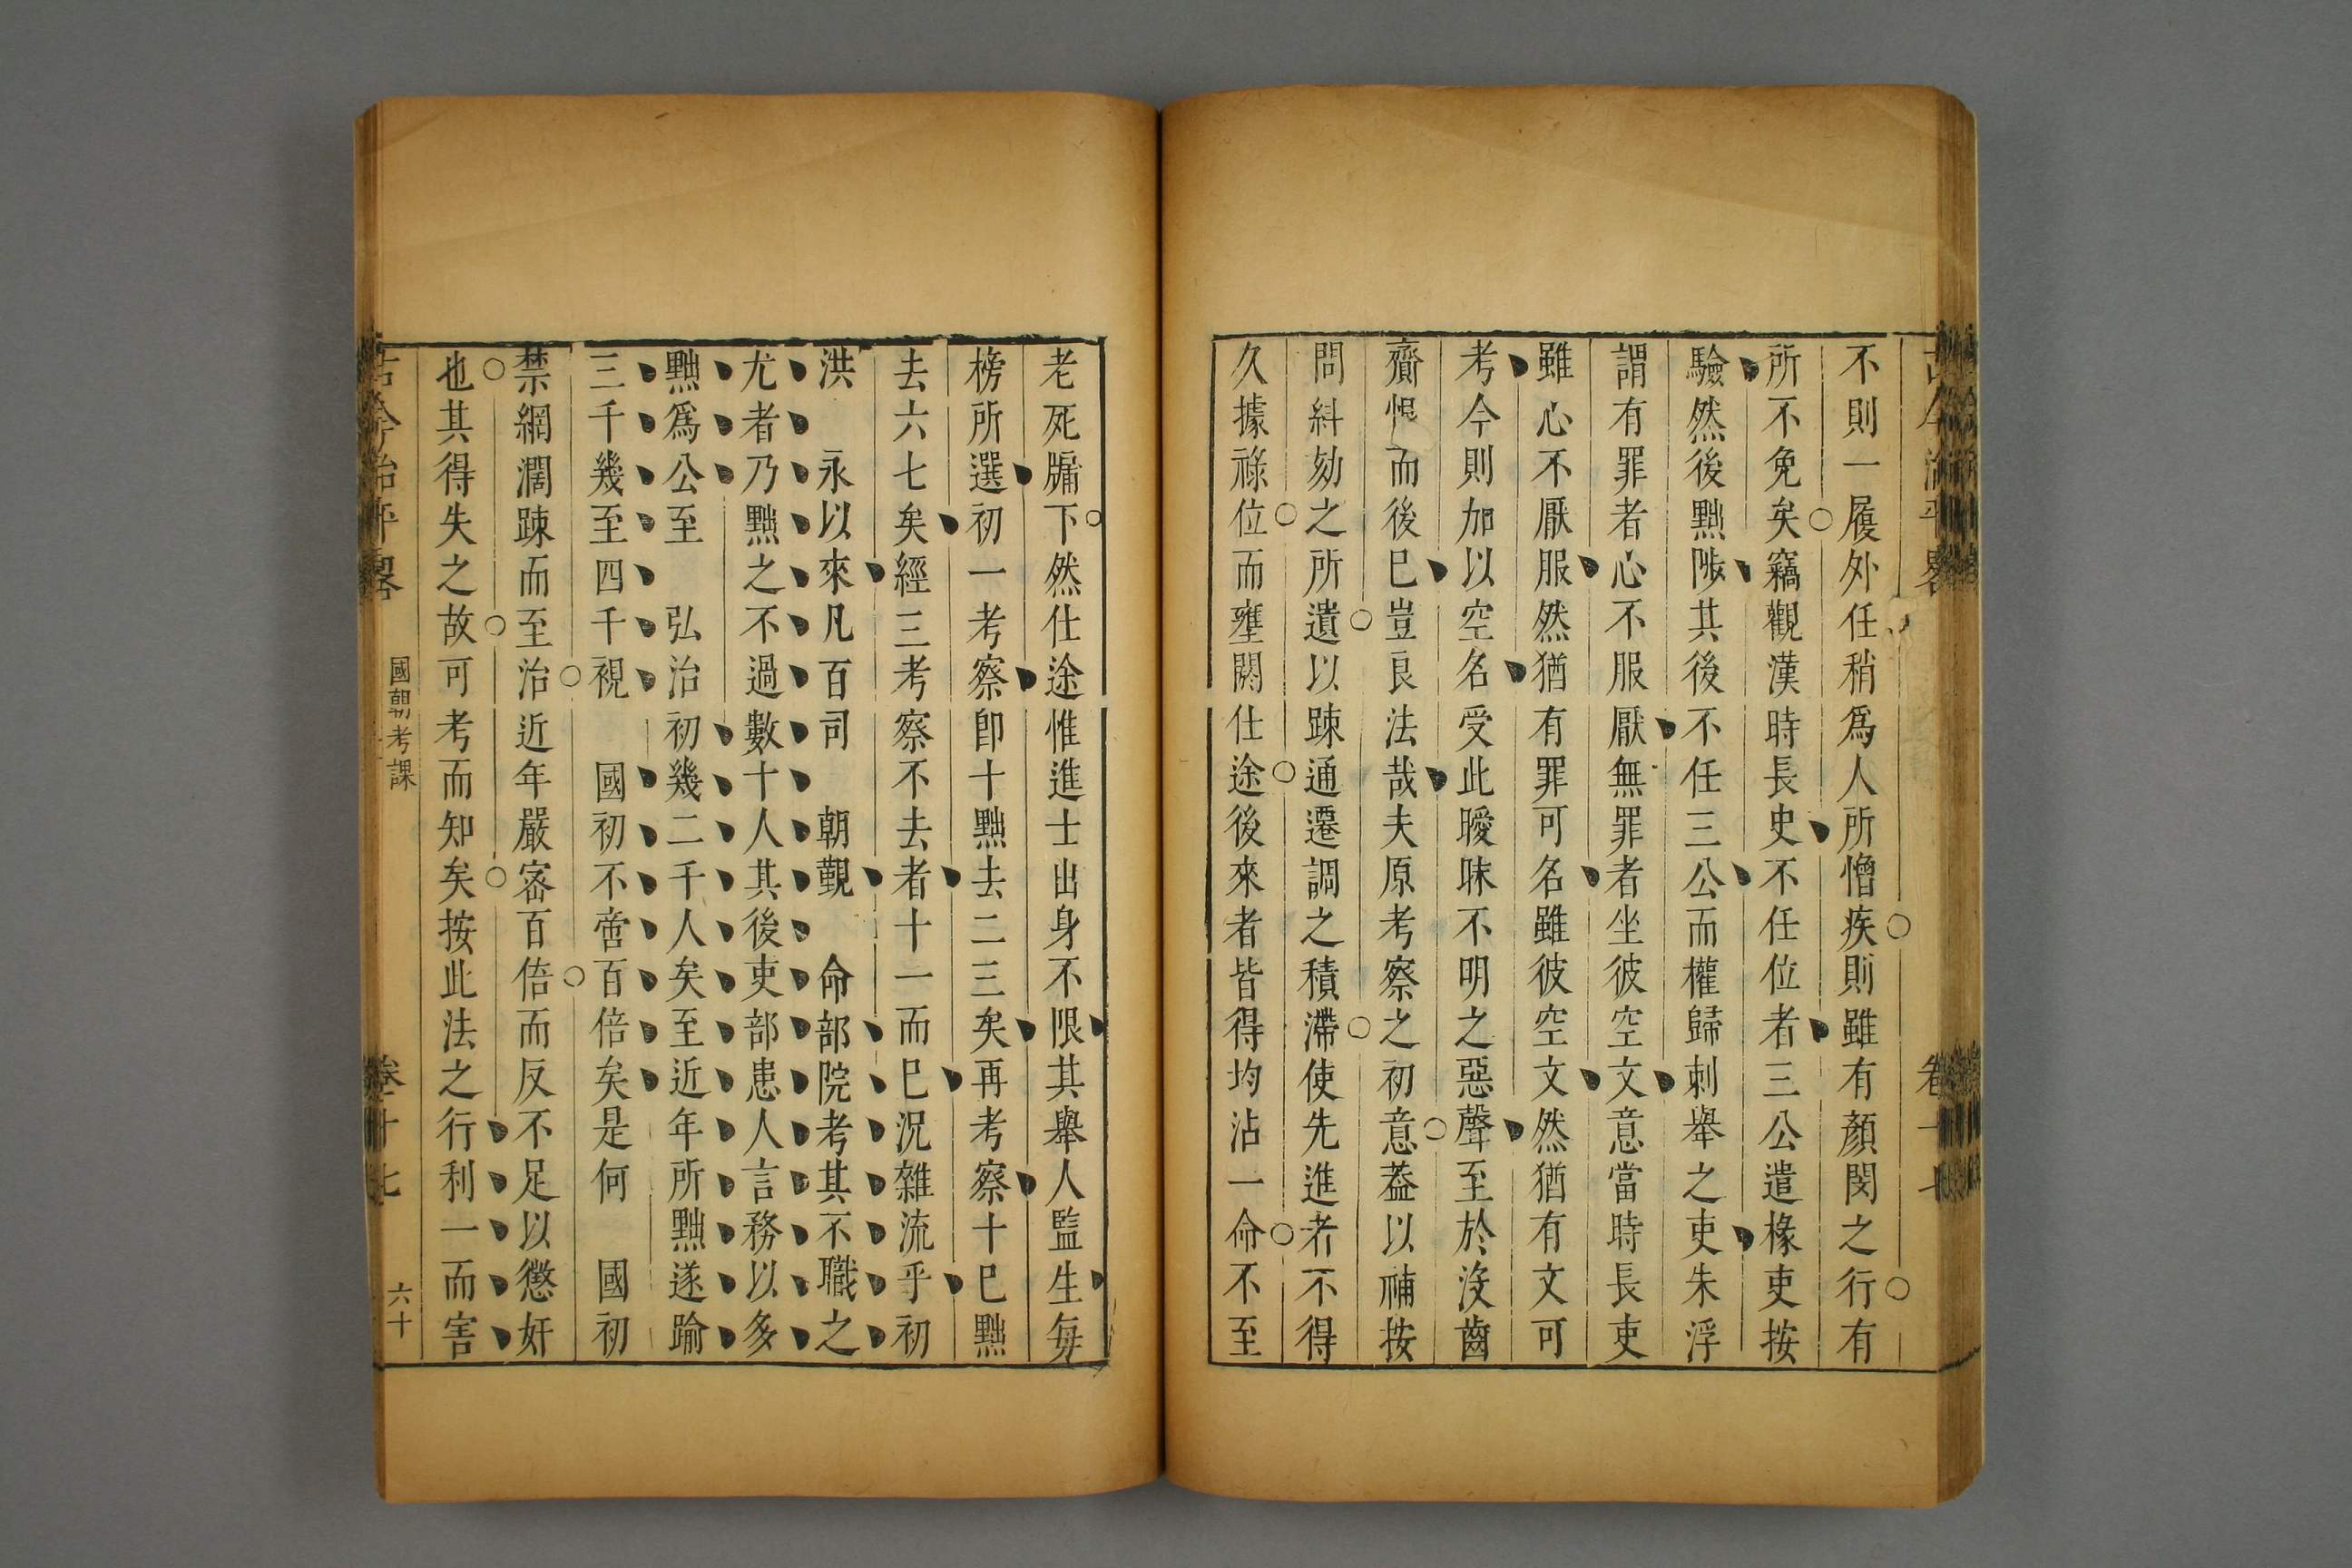 不則一履外任稍爲人所憎疾則雖有顏閔之行有
所不免矣竊觀漢時長史不任位者三公遣椽吏按
驗然後黜陟其後不任三公而權歸刺舉之吏朱浮
謂有罪者心不服厭無罪者坐彼空文意當時長吏
雖心不厭服然猶有罪可名雖彼空文然猶有文可
考今則加以空名受此曖昧不明之惡聲至於沒齒
齎恨而後巳豈良法哉夫原考察之初意葢以補按
問糾劾之所遺以踈通遷調之積滯使先進者不得
久據祿位而壅閼仕途後來者皆得均沾一命不至
老死牖下然仕途惟進士出身不限其舉人監生每
榜所選初一考察卽十黜去二三矣再考察十巳黜
去六七矣經三考察不去者十一而巳況雜流乎初
洪 永以來凡百司 朝覲 命部院考其不職之
尤者乃黜之不過數十人其後吏部患人言務以多
黜爲公至 弘治初幾二千人矣至近年所黜遂踰
三千幾至四千視 國初不啻百倍矣是何 國初
禁網濶踈而至治近年嚴宻百倍而反不足以懲奸
也其得失之故可考而知矣按此法之行利一而害
古今治平畧 國朝考課 卷十七 六十